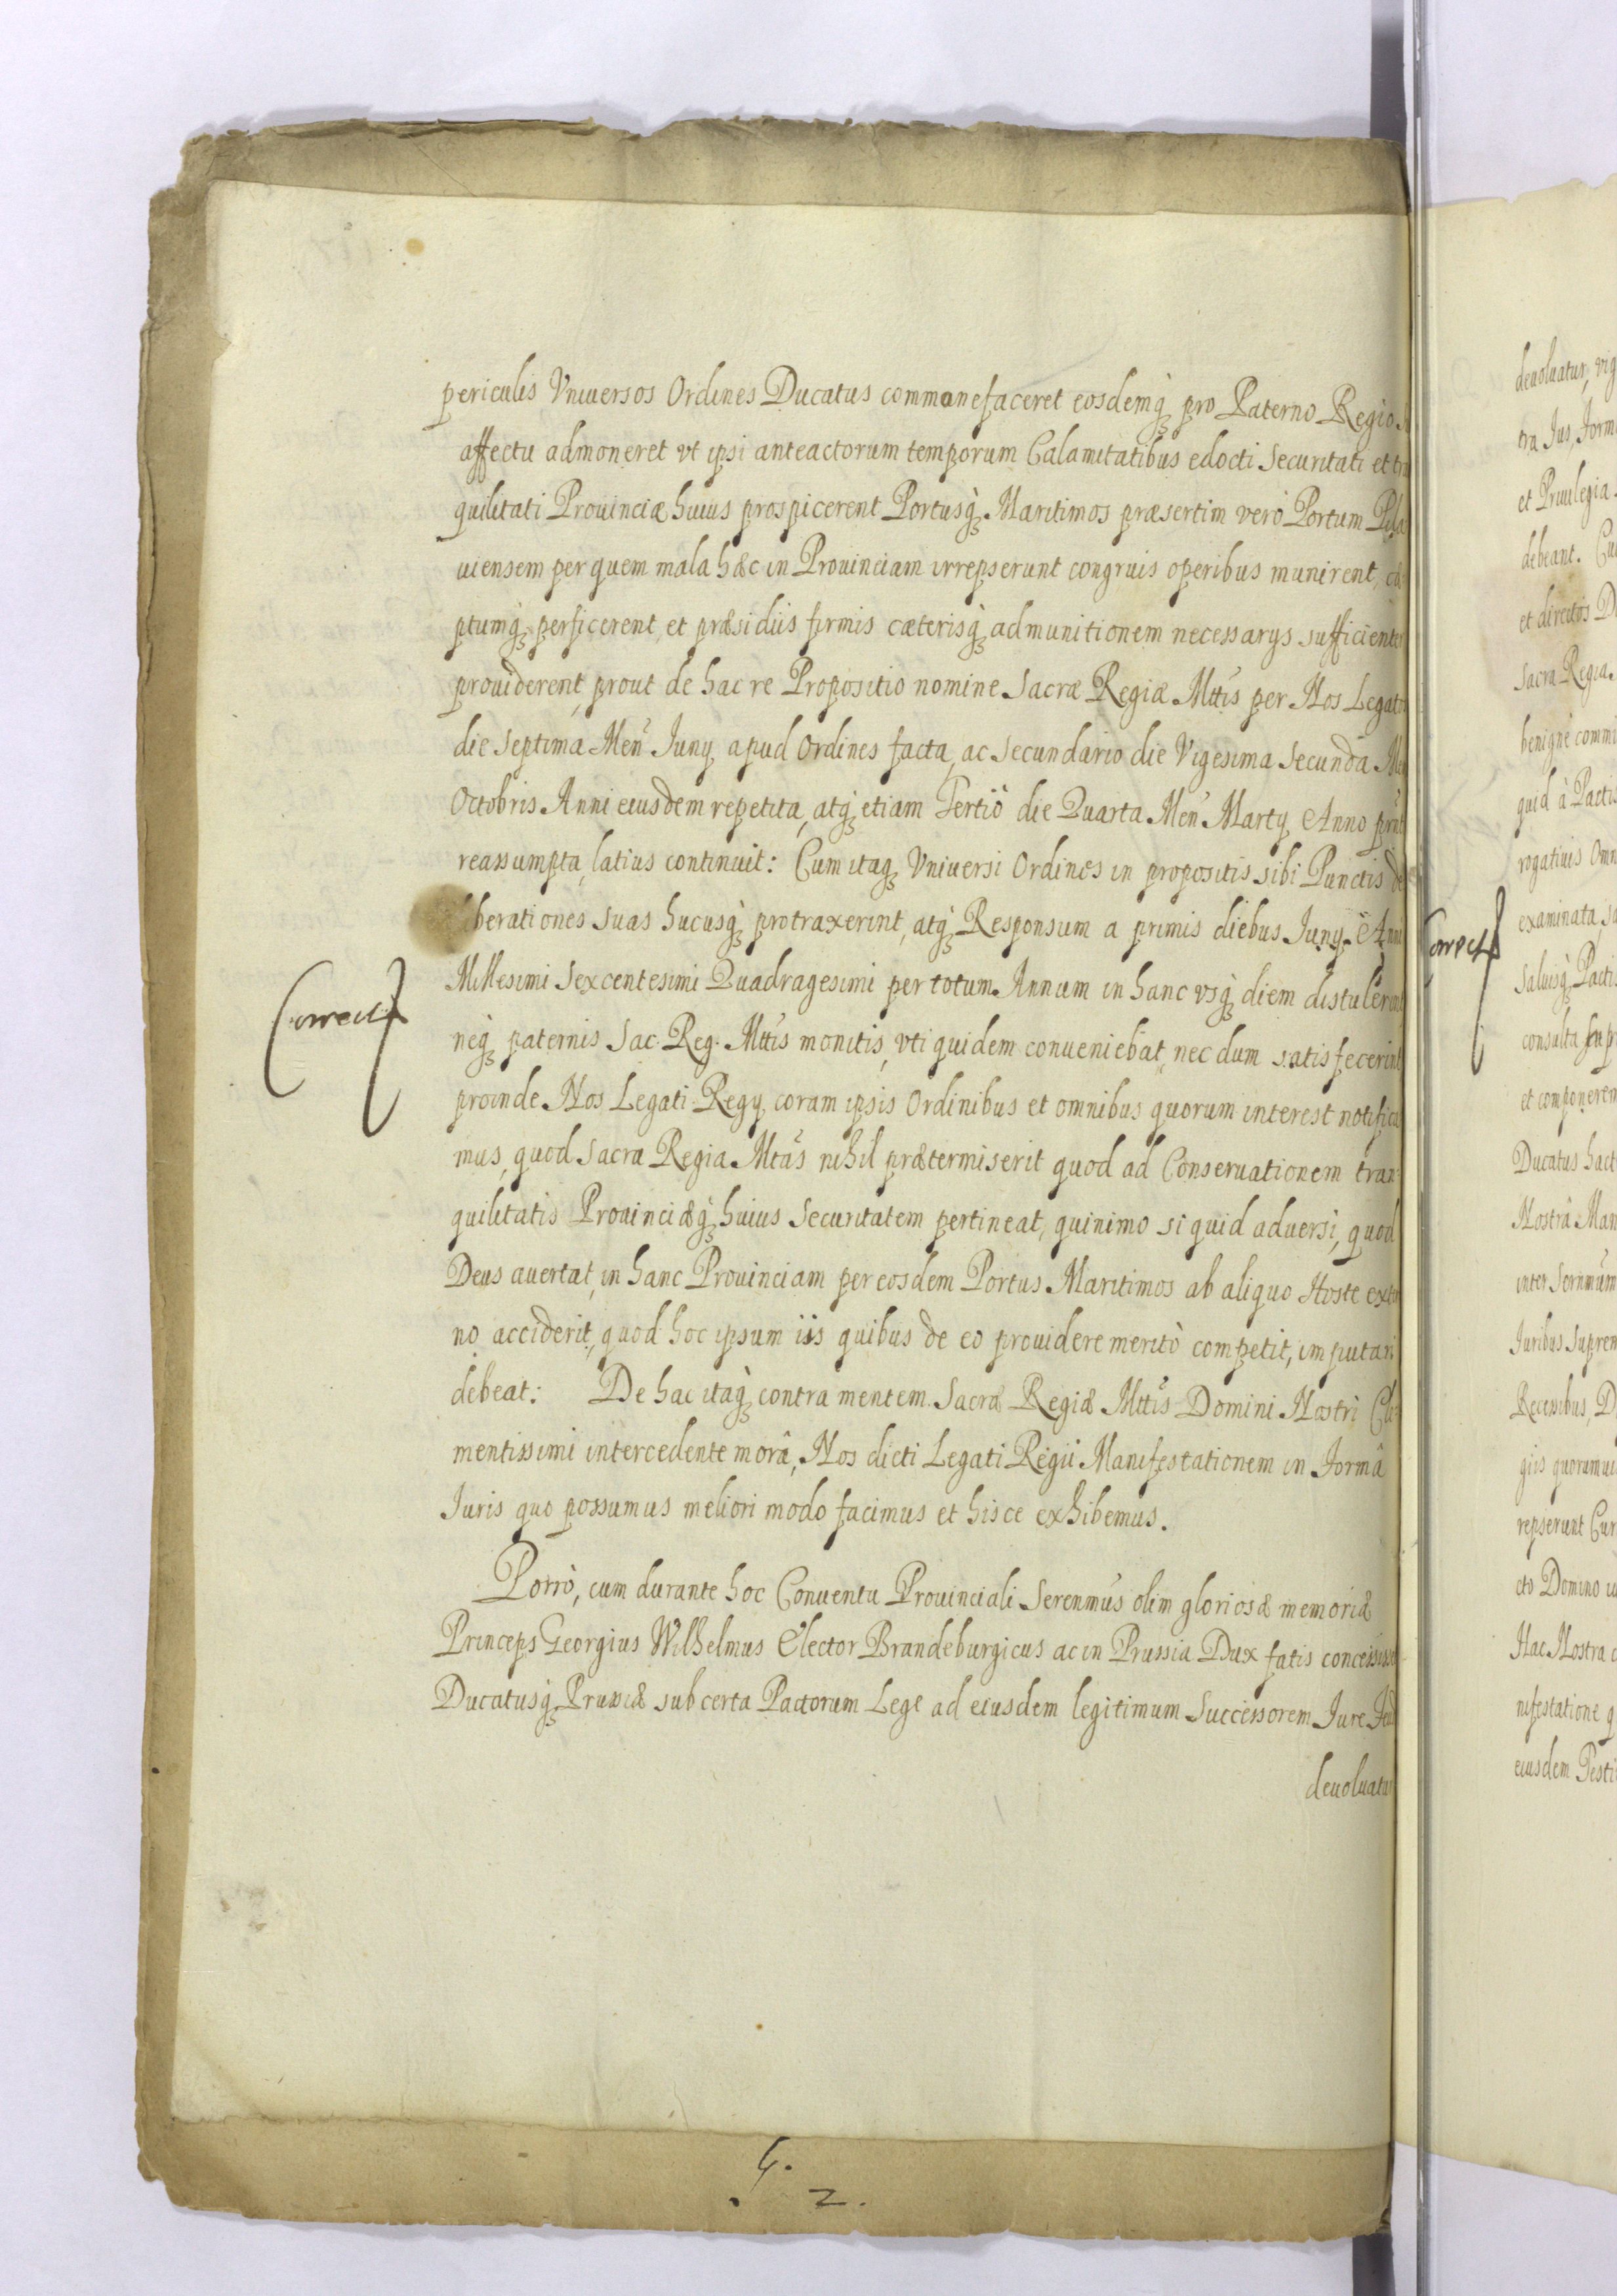 periculis Vniuersos Ordines Ducatus commonefaceret eosdemq́ꝫ pro Paterno Regio
affectu admoneret vt ipsi anteactorum temporum Calamitatibus edocti Securitati et tra
quilitati Prouinciæ huius prospicerent Portusq́ꝫ Maritimos præsertim verò Portum Pila
uiensem per quem mala hæc in Prouinciam irrepserunt congruis operibus munirent, cæ
ptumq́ꝫ perficerent, et præsidiis firmis cæterisq́ꝫ ad munitionem necessarys sufficienter
prouiderent, prout de hac re Propositio nomine Sacræ Regiæ Mttis per Nos Legatos
die Septima Men̄ Juny apud Ordines facta, ac Secundario die Vigesima Secunda Men
Octobris Anni eiusdem repetita, atq́ꝫ etiam Tertiò die Quarta Men̄ Marty Anno prnt
reassumpta, latius continuit: Cum itaqꝫ Vniuersi Ordines in propositis sibi Punctis de
liberationes suas hucusq́ꝫ protraxerint, atq́ꝫ Responsum a primis diebus Juny Anni
Millesimi Sexcentesimi Quadragesimi per totum Annum in hanc vsq́ꝫ diem distulerint
neq́ꝫ paternis Sac. Reg. Mttis monitis, vti quidem conueniebat, nec dum satisfecerint
proinde Nos Legati Regy coram ipsis Ordinibus et omnibus quorum interest notifica
mus, quod Sacra Regia Mtas nihil prætermiserit quod ad Conseruationem tran
quilitatis Prouinciæq́ꝫ huius Securitatem pertineat, quinimo si quid aduersi, quod
Deus auertat, in hanc Prouinciam per eosdem Portus Maritimos ab aliquo Hoste exter
no acciderit, quod hoc ipsum iis quibus de eo prouidere meritò competit, imputari
debeat: De hac itaq́ꝫ contra mentem Sacræ Regiæ Mttis Domini Nostri Cle
mentissimi intercedente morâ, Nos dicti Legati Regii Manifestationem in Formâ
Iuris quo possumus meliori modo facimus et hisce exhibemus.
Porrò, cum durante hoc Conuentu Prouinciali Serenmus olim gloriosæ memoriæ
Princeps Georgius Wilhelmus Elector Brandeburgicus ac in Prussia Dux fatis concessisset
Ducatusq́ꝫ Prussiæ sub certa Pactorum Lege ad eiusdem legitimum Successorem Iure Feu
deuoluatur
Correct
4.
2.
Correct
deuoluatur, vig
tra Jus, Form
et Priuilegia
debeant. Cu
et directos D
Sacra Regia
benignè commi
quid à Pactis
rogatiuis Omn
examinata, sa
saluisq́ꝫ Pactis
consulta
et componeren
Ducatus hact
Nostrâ Man
inter Sernmum
Juribus Suprem
Recessibus, D
giis quorumui
repserunt Cur
cto Domino
Hac Nostra
nifestatione q
eiusdem Testi